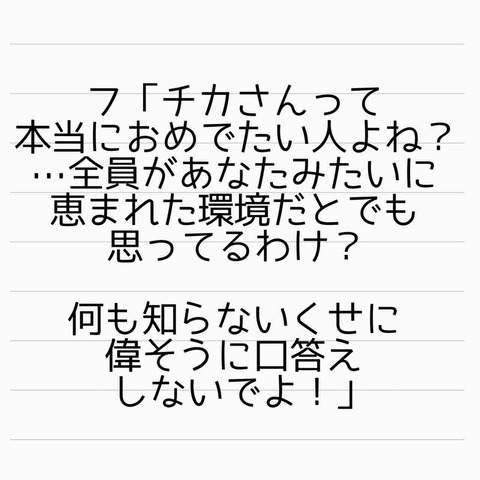 フ「チカさんって
本当におめでたい人よね？
…全員があなたみたいに
恵まれた環境だとでも
思ってるわけ？
何も知らないくせに
偉そうに口答え
しないでよ！」